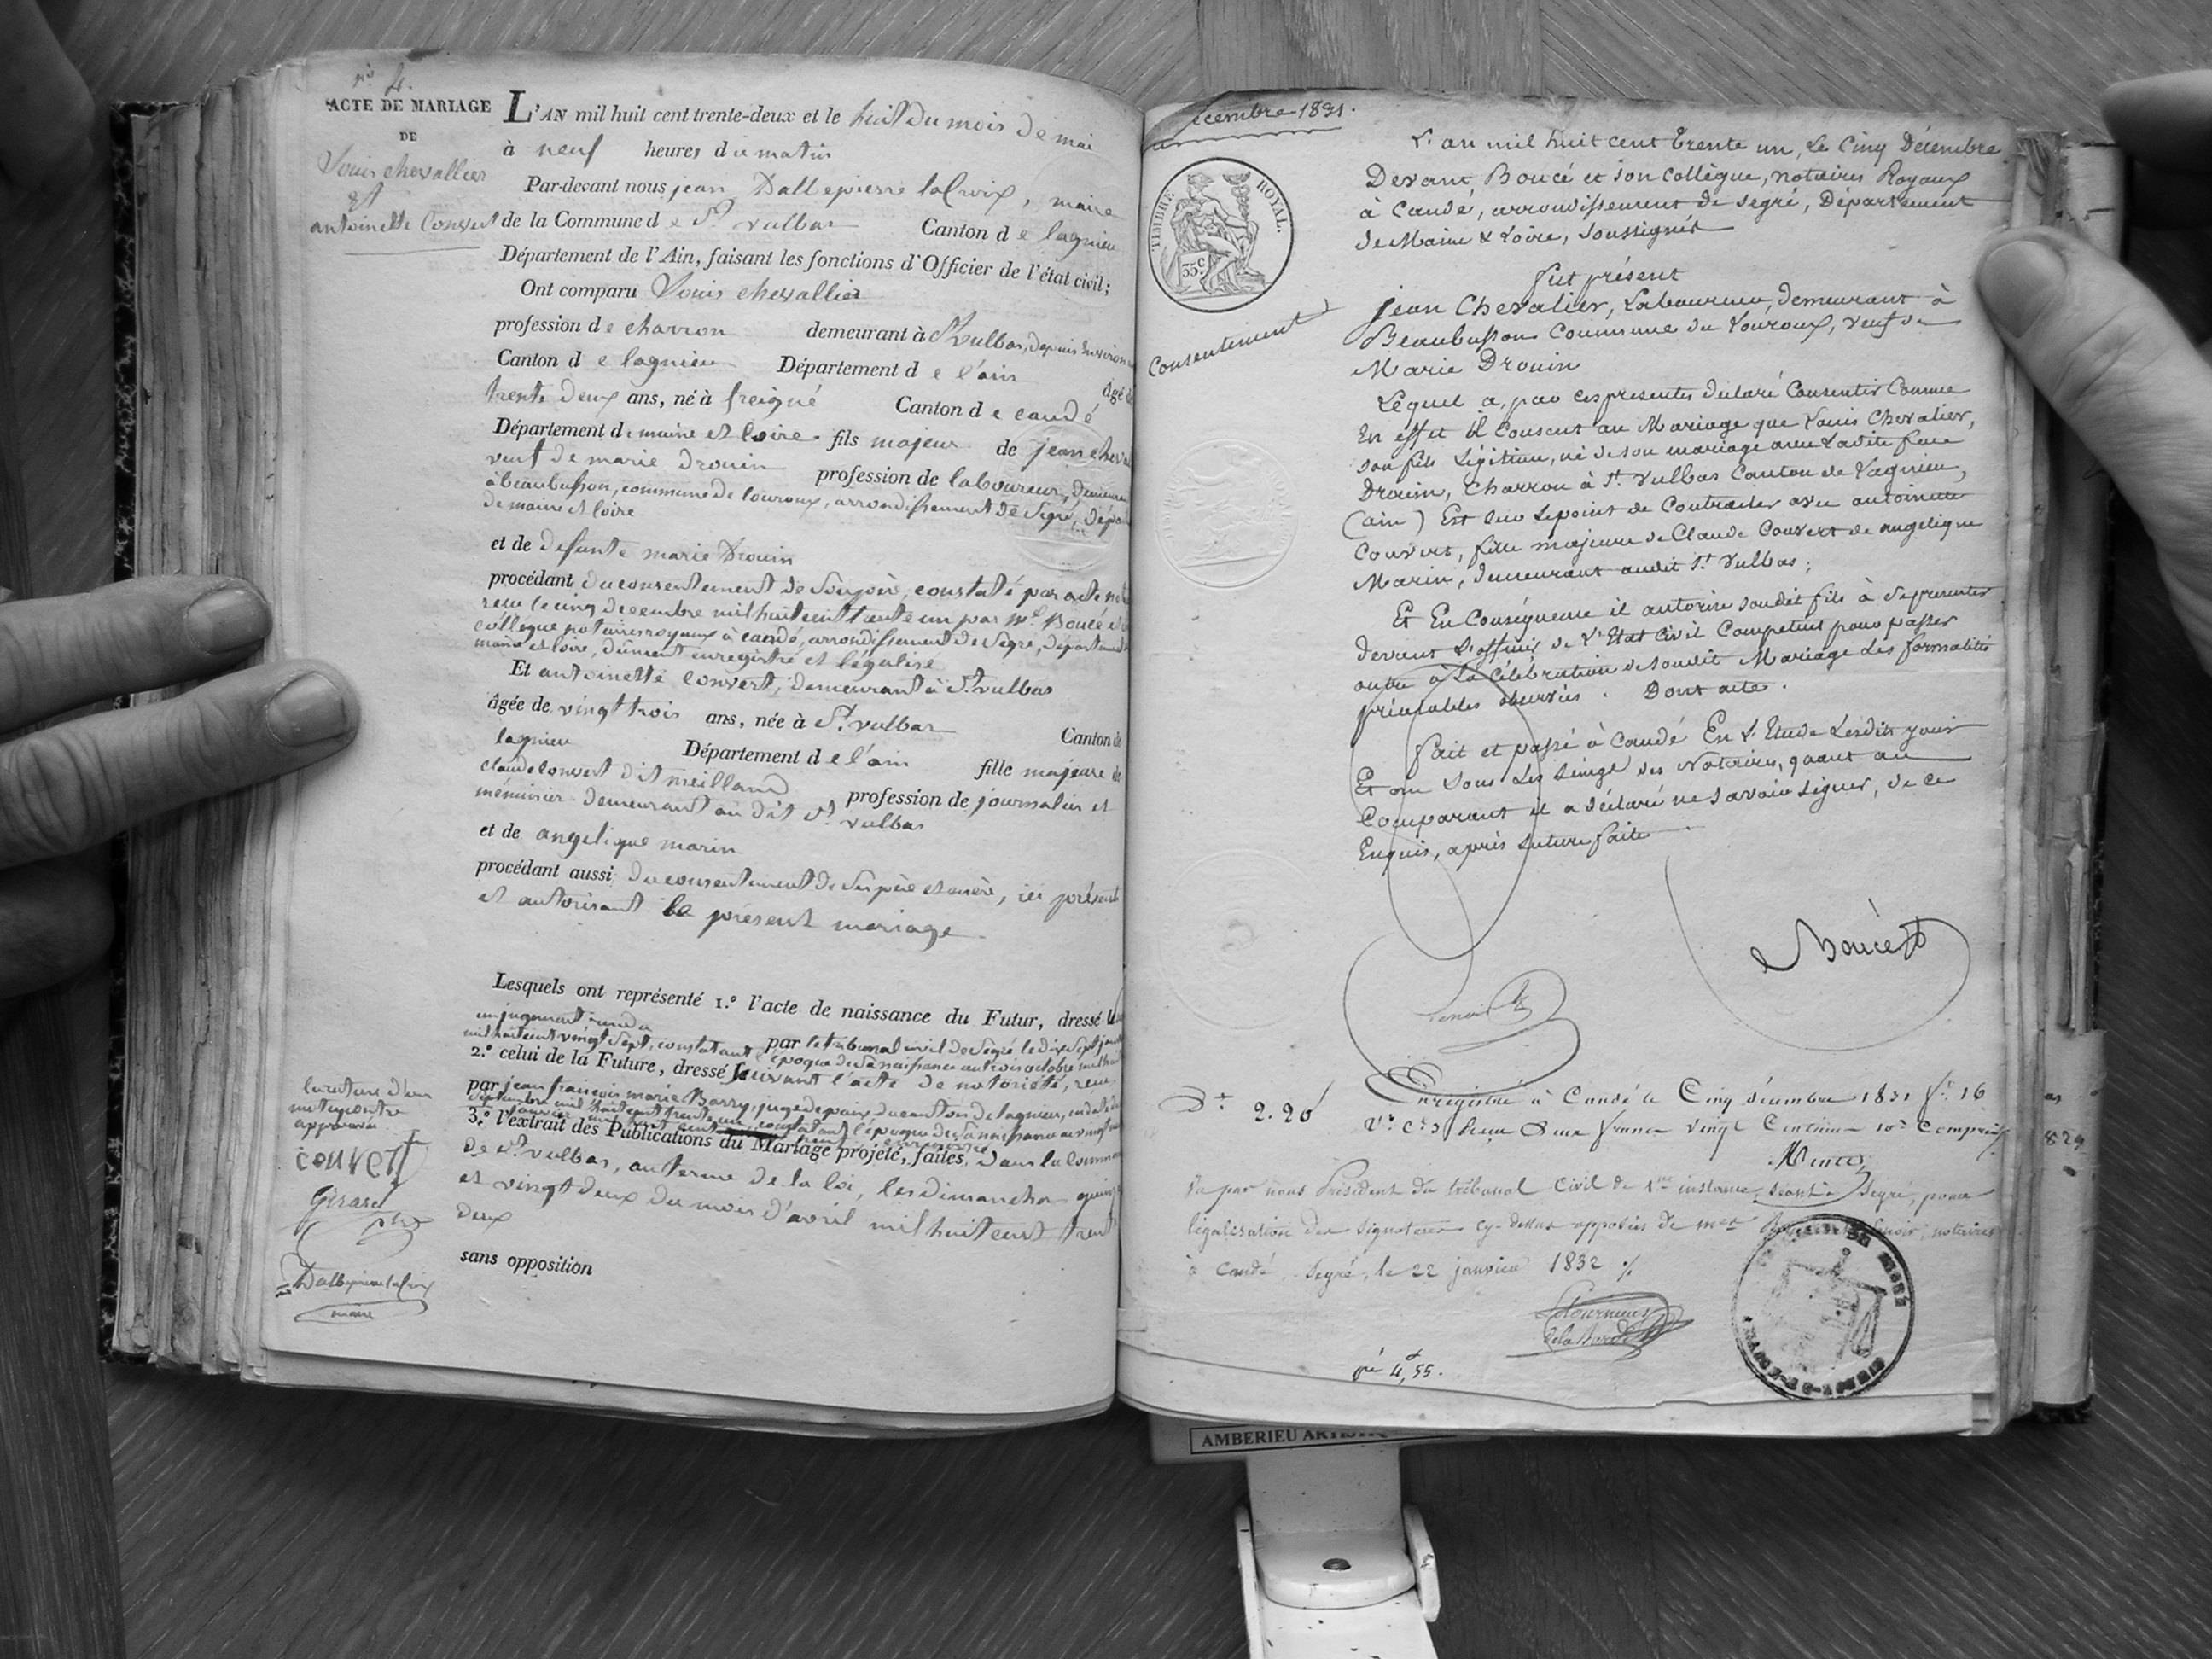 n.º 4.
ACTE DE MARIAGE
DE
Louis chevallier
et
antoinette Convert
L'AN mil huit cent trente-deux et le huit du mois de mai
à neuf heures du matin
Par-devant nous jean Dallepierre laCroix, maire
de la Commune de St. vulbas Canton de lagnieu
Département de l'Ain, faisant les fonctions d'Officier de l'état civil;
Ont comparu Louis chevallier
profession de charron demeurant à St. vulbas, depuis environ
Canton de lagnieu Département de l'ain âgé de
trente deux ans, né à freigné Canton de candé
Département de maine et loire fils majeur de jean cheva
veuf de marie Drouin profession de laboureur, demeura
à beaubusson, commune de louroux, arrondissement de Segré, dépa
de maine et loire
et de défunte marie Drouin
procédant du consentement de Son père, constaté par acte
reçu le cinq decembre mil huit cent trente un par Me. Boucé et
collègue notaires royaux à candé, arrondissement de Segré, département
maine et loire, dûment enregistré et légalisé
Et antoinette Convert, demeurant à St. vulbas
âgée de vingt trois ans, née à St. vulbas Canton de
lagnieu Département de l'ain fille majeure de
claude Convert dit meilland profession de journalier et
ménuisier demeurant au dit St. vulbas
et de angelique marin
procédant aussi du consentement de Ses père et mère, ici présents
et autorisant le présent mariage
Lesquels ont représenté 1.º l'acte de naissance du Futur, dressé
un jugement rendu par le tribunal civil de Segré le dix Sept
mil huit cent vingt Sept, constatant l'époque de Sa naissance au trois octobre mil huit
2.º celui de la Future, dressé Suivant l'acte de notoriété, reçu
par jean françois marie Barry, juge de paix du canton de lagnieu, en date du
Septembre mil huit cent trente un, constatant l'époque de Sa naissance au vingt
3.º l'extrait des Publications du Mariage projeté, faites, dans la commune
de St. vulbas, au terme de la loi, les dimanches quinze
et vingt deux du mois d'avril mil huit cent trente
deux
sans opposition
la rature d'un
mot
approuvée
convert
Girard
Dallepierre laCroix
maire
écembre 1831.
TIMBRE ROYAL.
35c
Consentement
L'an mil huit cent trente un, Le Cinq Décembre
Devant Boucé et son Collègue, notaires Royaux
à Candé, arrondissement de Segré, Département
de Maine & Loire, soussignés
fut présent
jean Chevalier, Laboureur, demeurant à
Beaubusson Commune du Louroux, veuf de
Marie Drouin
Lequel a, par ces présentes déclaré Consentir Comme
En effet il Consent au Mariage que Louis Chevalier,
son fils Légitime, né de son mariage avec Ladite feue
Drouin, Charron à St. Vulbas Canton de Lagnieu,
(ain) Est sur le point de Contracter avec antoinette
Convert, fille majeure de Claude Convert de angelique
Marin, demeurant audit St. Vulbas;
Et En Conséquence il autorise sondit fils à se presenter
devant L'officier de L'Etat Civil Compétent pour passer
outre à La Célébration de soudit Mariage Les formalités
préalables observées. Dont acte.
fait et passé à Candé En L'Etude Lesdits jour
Et an sous Les seings des Notaires, quant au
Comparant il a déclaré ne savoir signer, de ce
Enquis, après Lecture faite
Boucé
Dt. 2.20
Enregistré à Candé le Cinq décembre 1831 fo. 16
Vo. Cs. 3 Reçu Deux francs vingt Centimes 10e Compris
Vu par nous Président du tribunal Civil de 1re instance séant à Segré, pour
légalisation des signatures cy-dessus apposées de mes notaires
à Candé. Segré, le 22 janvier 1832 ./.
4,55.
829
AMBERIEU